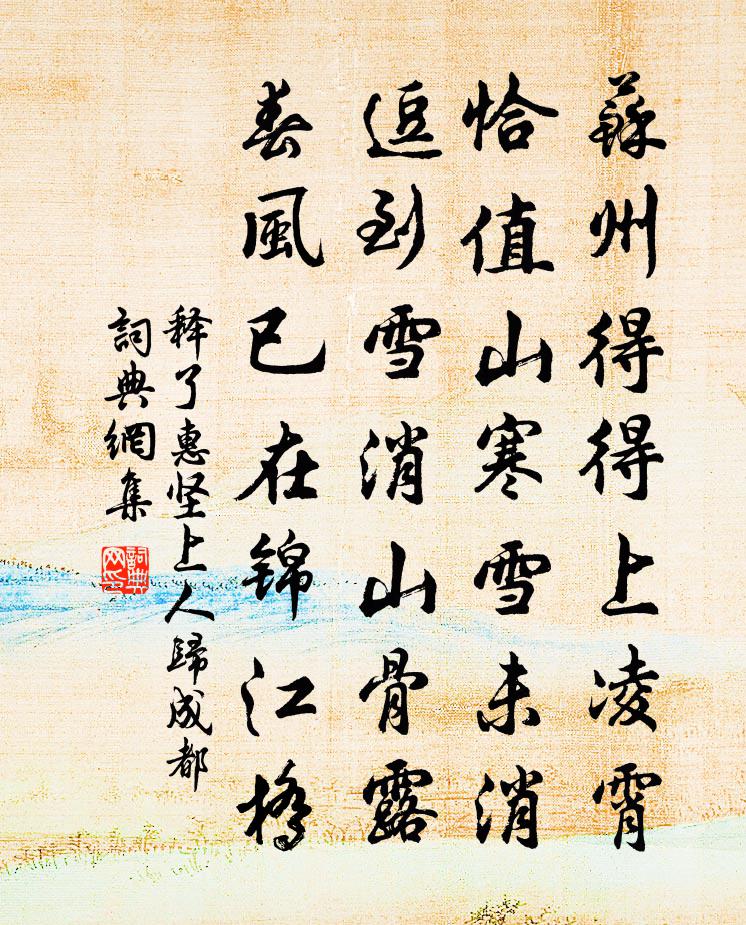 蘇州得得上凌霄
恰值山寒雪未消
逗到雪消山骨露
春風已在锦江橋
释了惠坚上人歸成都
詞典網集
詞典网印